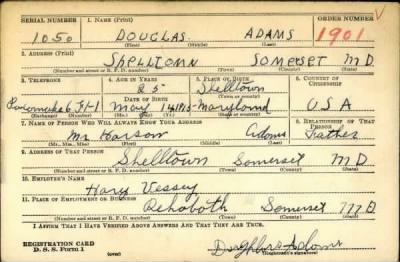 SERIAL NUMBER 1. NAME (Print) ORDER NUMBER
1050 DOUGLAS ADAMS 1901
(First) (Middle) (Last)
2. ADDRESS (Print)
Shelltown Somerset MD.
(Number and street or R. F. D. number) (Town) (County) (State)
3. TELEPHONE 4. AGE IN YEARS 5. PLACE OF BIRTH 6. COUNTRY OF CITIZENSHIP
25 Shelltown
(Town or county)
DATE OF BIRTH
Pocomoke 6 F1-1 May Maryland USA
(Exchange) (Number) (Mo.) (Day) (Yr.) (State or country)
7. NAME OF PERSON WHO WILL ALWAYS KNOW YOUR ADDRESS 8. RELATIONSHIP OF THAT PERSON
Mr Adams Father
(Mr., Mrs., Miss) (First) (Middle) (Last)
9. ADDRESS OF THAT PERSON
Shelltown Somerset MD
(Number and street or R. F. D. number) (Town) (County) (State)
10. EMPLOYER'S NAME
Vessey
11. PLACE OF EMPLOYMENT OR BUSINESS
Rehoboth Somerset MD
(Number and street or R. F. D. number) (Town) (County) (State)
I AFFIRM THAT I HAVE VERIFIED ABOVE ANSWERS AND THAT THEY ARE TRUE.
REGISTRATION CARD
D. S. S. FORM 1 (over) Douglas Adams
(Registrant's signature)